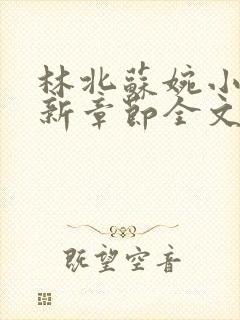 林北蘇婉小
新章節全文
既望空音